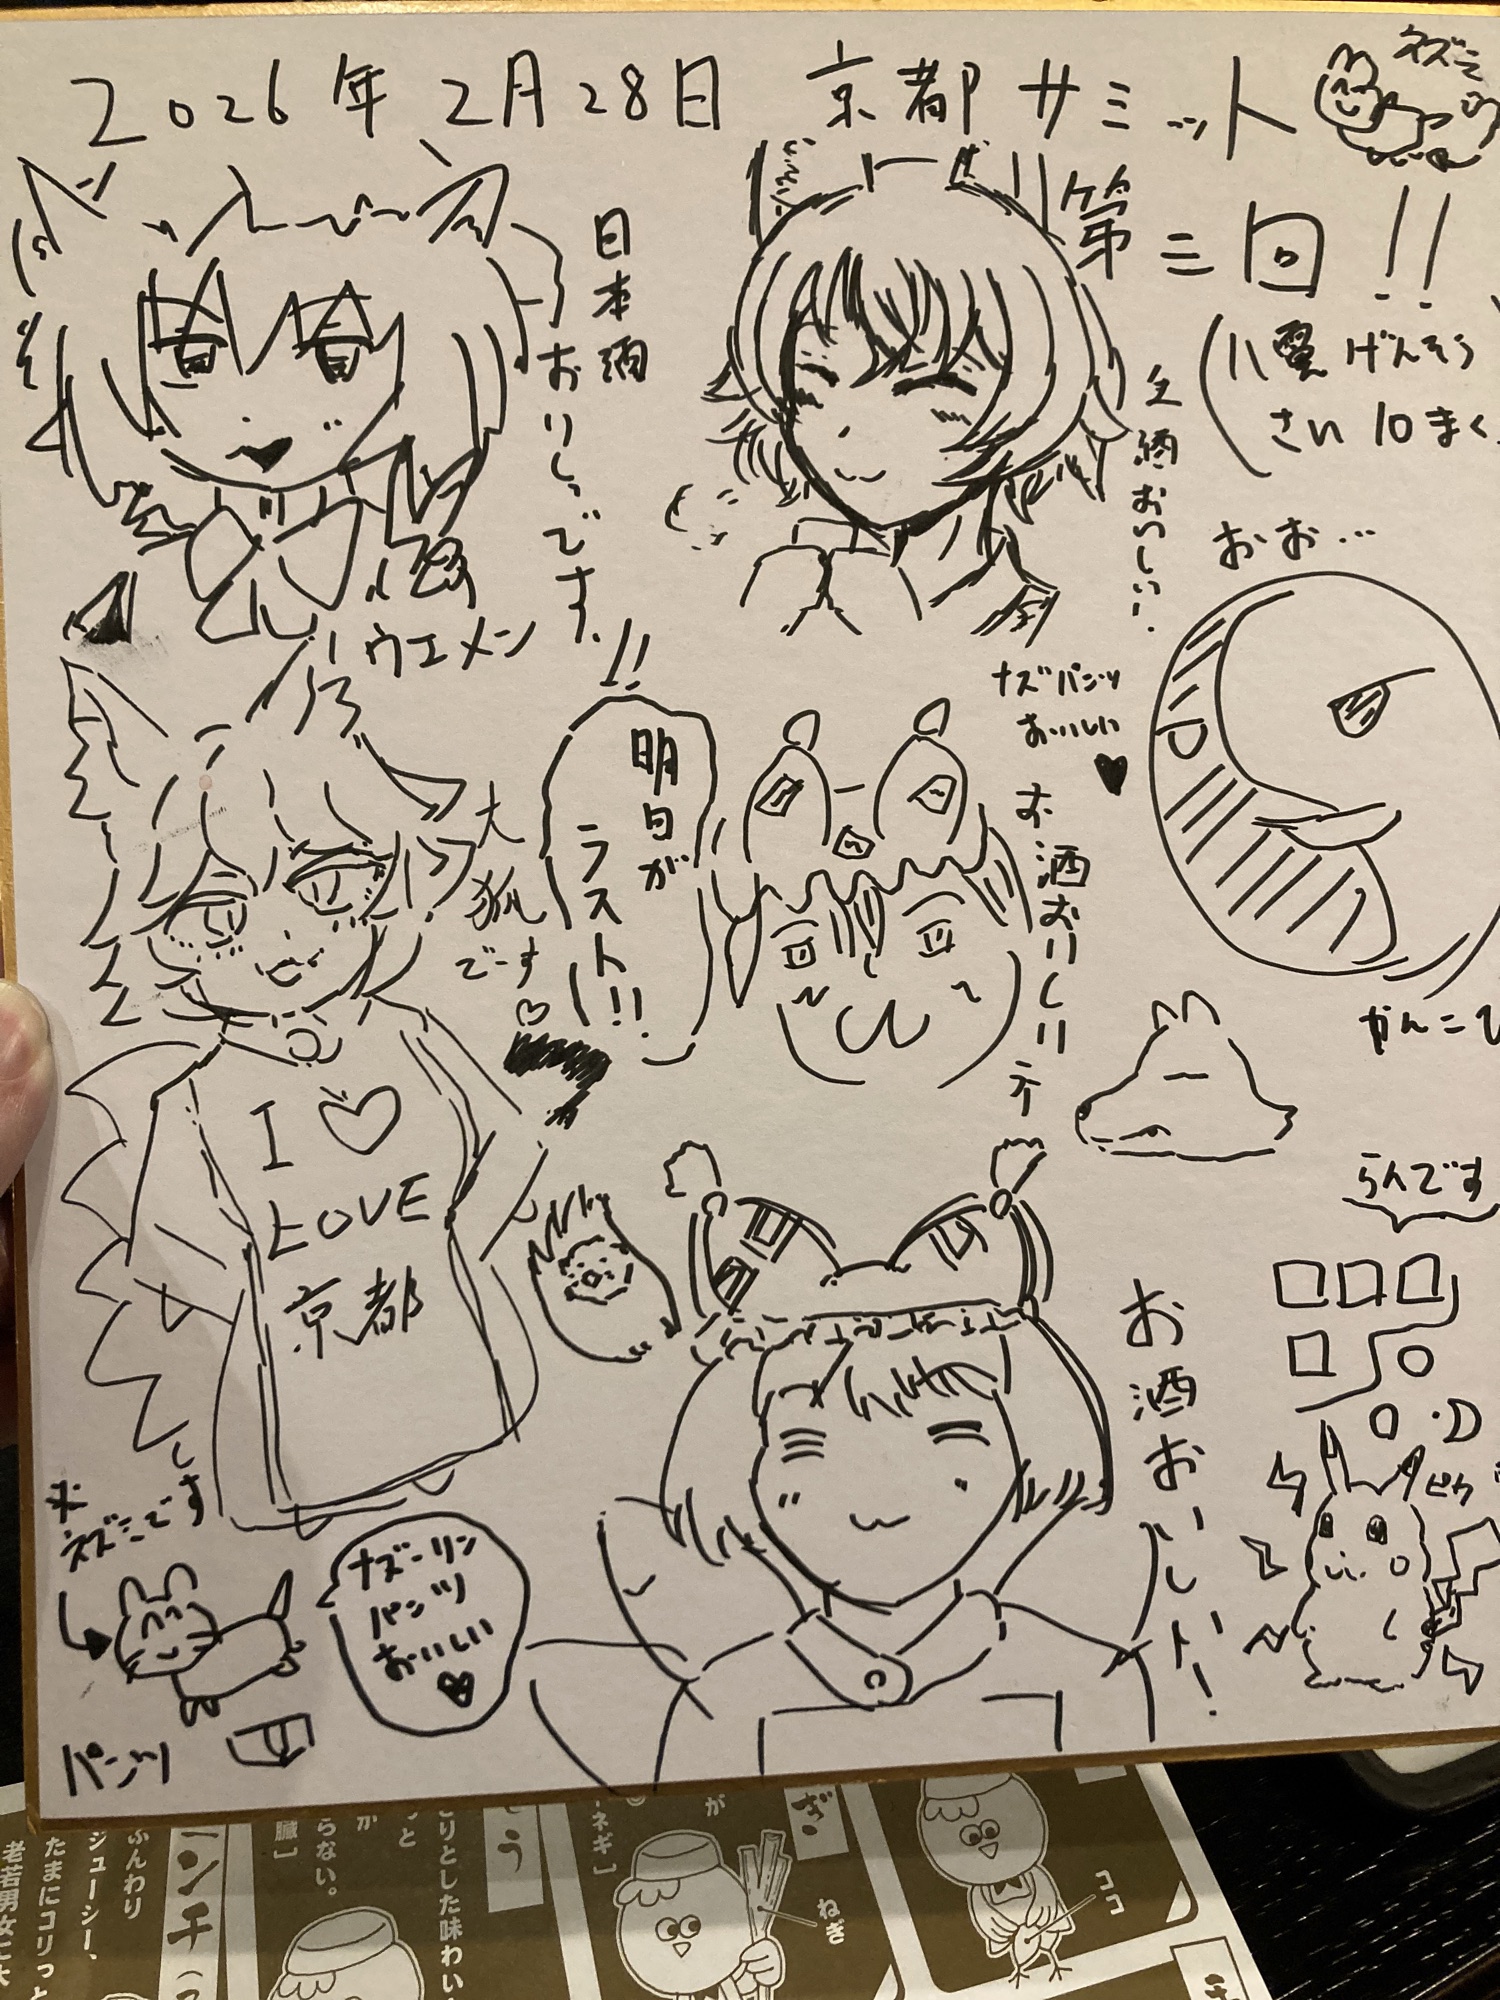 2026年2月28日 京都サミット
ネズミ
第三回!!
げんそう
さい 10まく
日本酒
おいしいです。
ウエメン
酒おいしい!
おお…
ナズパンツ
おいしい
♥
!!
明日が
ラスト!!
大狐
でーす
♡
お酒おいしいデ
かんこ
I ♡
LOVE
京都
らんです
お酒おいしい!
ピカ
ネズミです
ナズーリン
パンツ
おいしい
♥
パンツ
ンチ
ふんわり
ジューシー、
たまにコリっと
老若男女に大
らない。
臓」
が
っと
こりとした味わい
う
ネギ」
が
ぎ
ねぎ
ココ